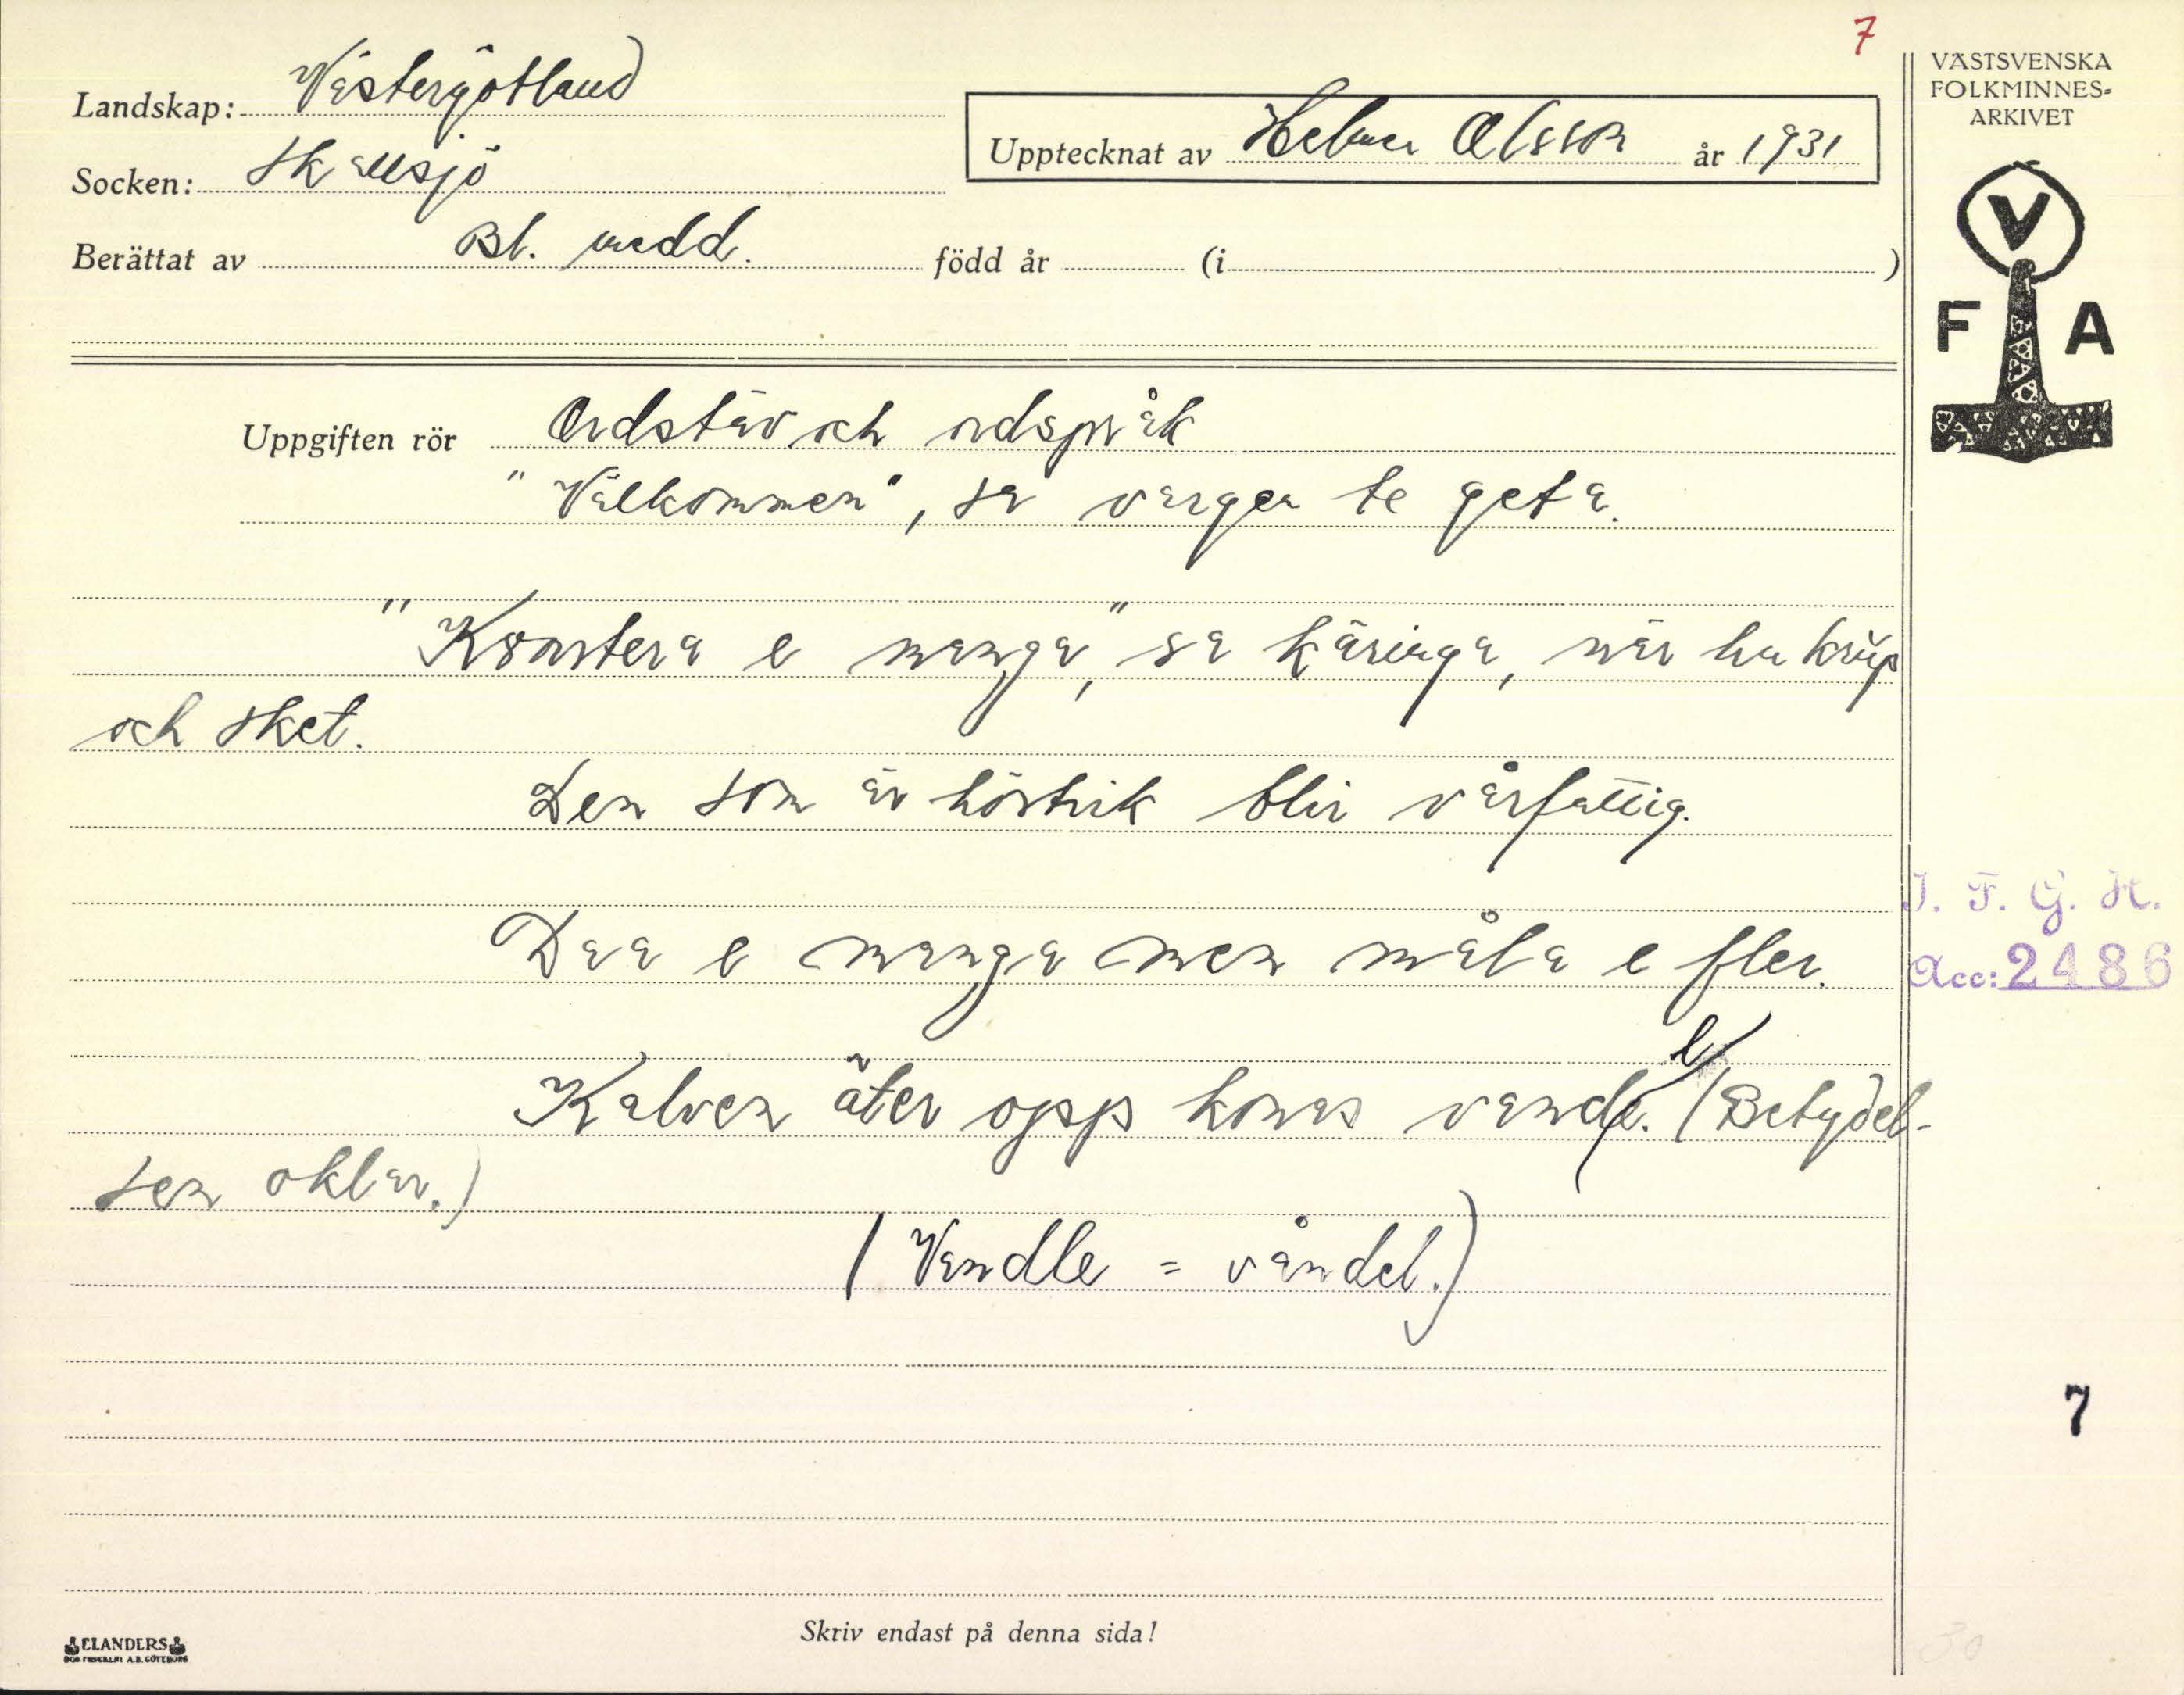 7
Landskap: Västergötland
Socken: Skallsjö
Berättat av Bl. medd. född år (i )
Upptecknat av Helmer Olsson år 1931
VÄSTSVENSKA
FOLKMINNES-
ARKIVET
V
F A
Uppgiften rör Ordstäv och ordspråk
"Välkommen", sa vargen te geta.
"Konstera e manga," sa käringa, när hu krúp
och sket.
Den som är höstrik blir vårfattig.
Daa e manga men måla e fler.
I. F. G. H.
Acc: 2486
Kalven äter opp konas vandle. (Betydel-
sen oklar.)
(Vandle = våndel.)
7
Skriv endast på denna sida!
ELANDERS
30